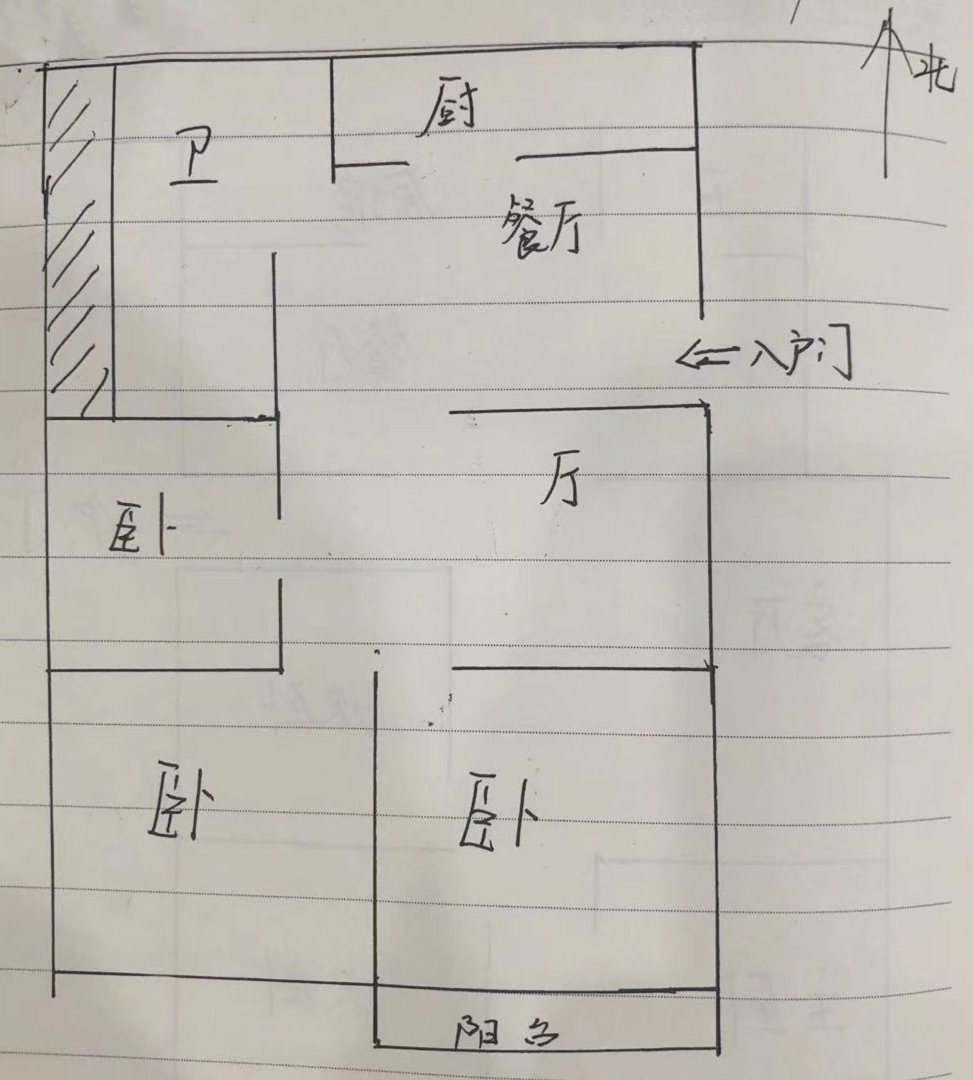 北
厨
卫
餐厅
入户门
厅
卧
卧
卧
阳台